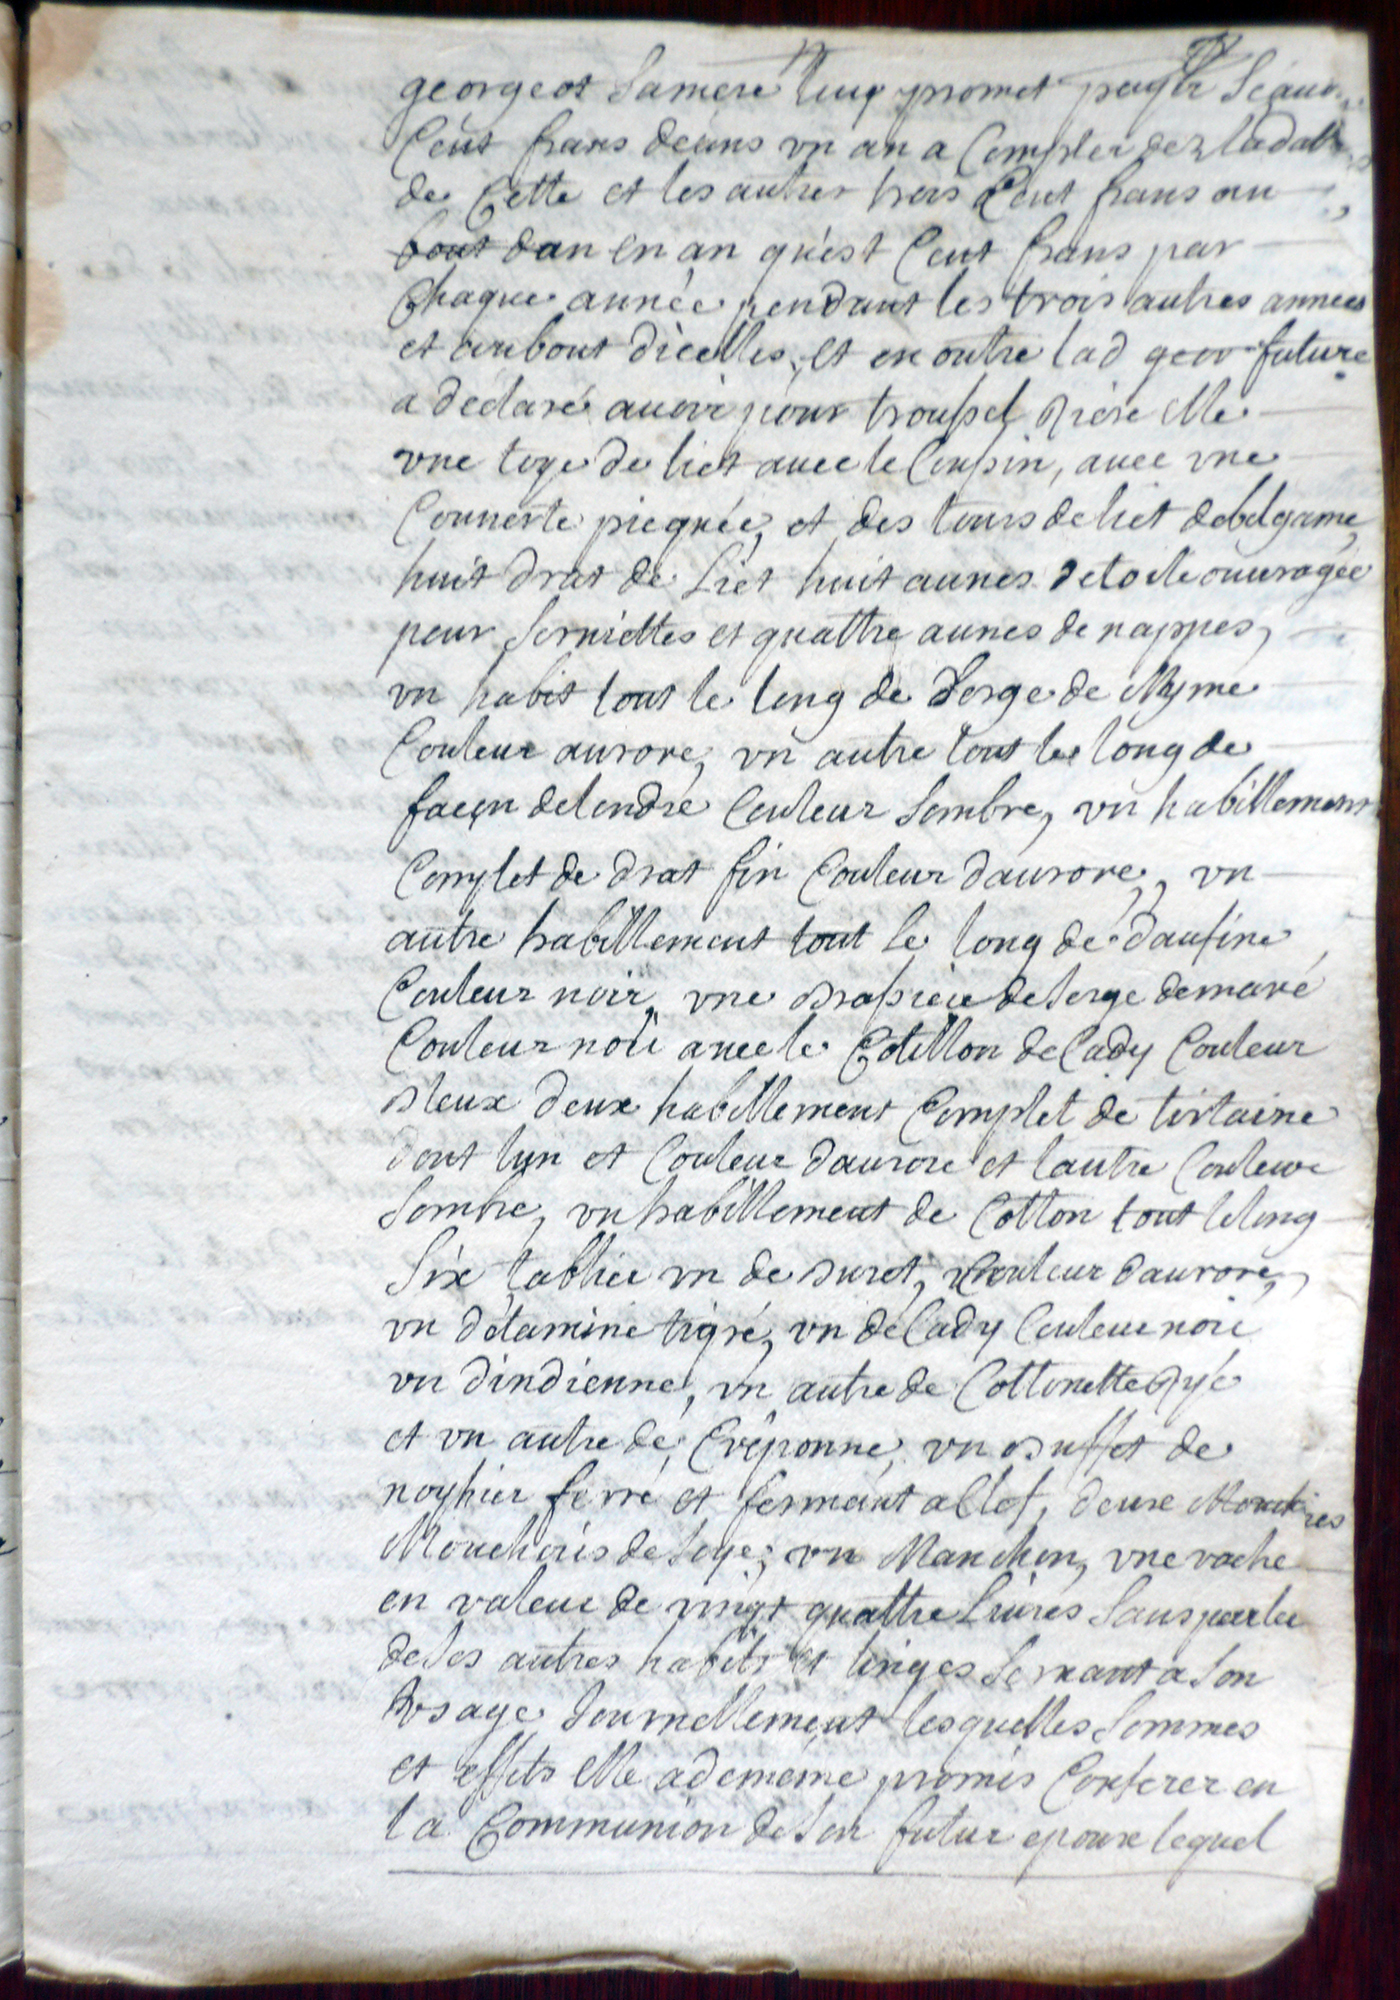 georgeot Samere luy promet payer Scauo
Cent frans deans vn an a Compter dez ladatte
de Cette et les autres trois Cent frans au
bout dan en an qu'est Cent frans par
Chaque année pendant les trois autres annees
et aubout dicelles, et en outre lad geor future
a déclaré auoir pour troussel riere elle
vne toye de liet auec le Coussin, auec vne
Couuerte piequée, et des tours de liet debelgame,
huit drat de Liet huit aunes detoile ouuragée
pour Seruiettes et quattre aunes de nappes,
vn habit tout le long de Serge de Nyme
Couleur aurore, vn autre tout le long de
façon delondre Couleur Sombre, vn habillement
Complet de drat fin Couleur daurore, vn
autre habillement tout le long de daufine
Couleur noir, vne Brassiere de Serge demaré
Couleur noir auec le Cotillon de Cady Couleur
Bleux deux habillement Complet de tirtaine
dont lun et Couleur daurore et lautre Couleur
Sombre, vn habillement de Cotton tout le long
Six tablier vn de Buret, Couleur daurore,
vn détamine tigré, vn de Cady Couleur noir
vn dindienne, vn autre de Cottonette Ryée
et vn autre de Crêponne, vn Buffet de
noyhier ferré et fermant a Clef, deux
Mouchoirs de Soye, vn Manchon, vne vache
en valeur de vingt quattre Liures Sans parler
de Ses autres habits et linges Seruant a Son
Vsage Journellement lesquelles Sommes
et effets elle ademême promis Conferer en
la Communion de Son futur epoux lequel